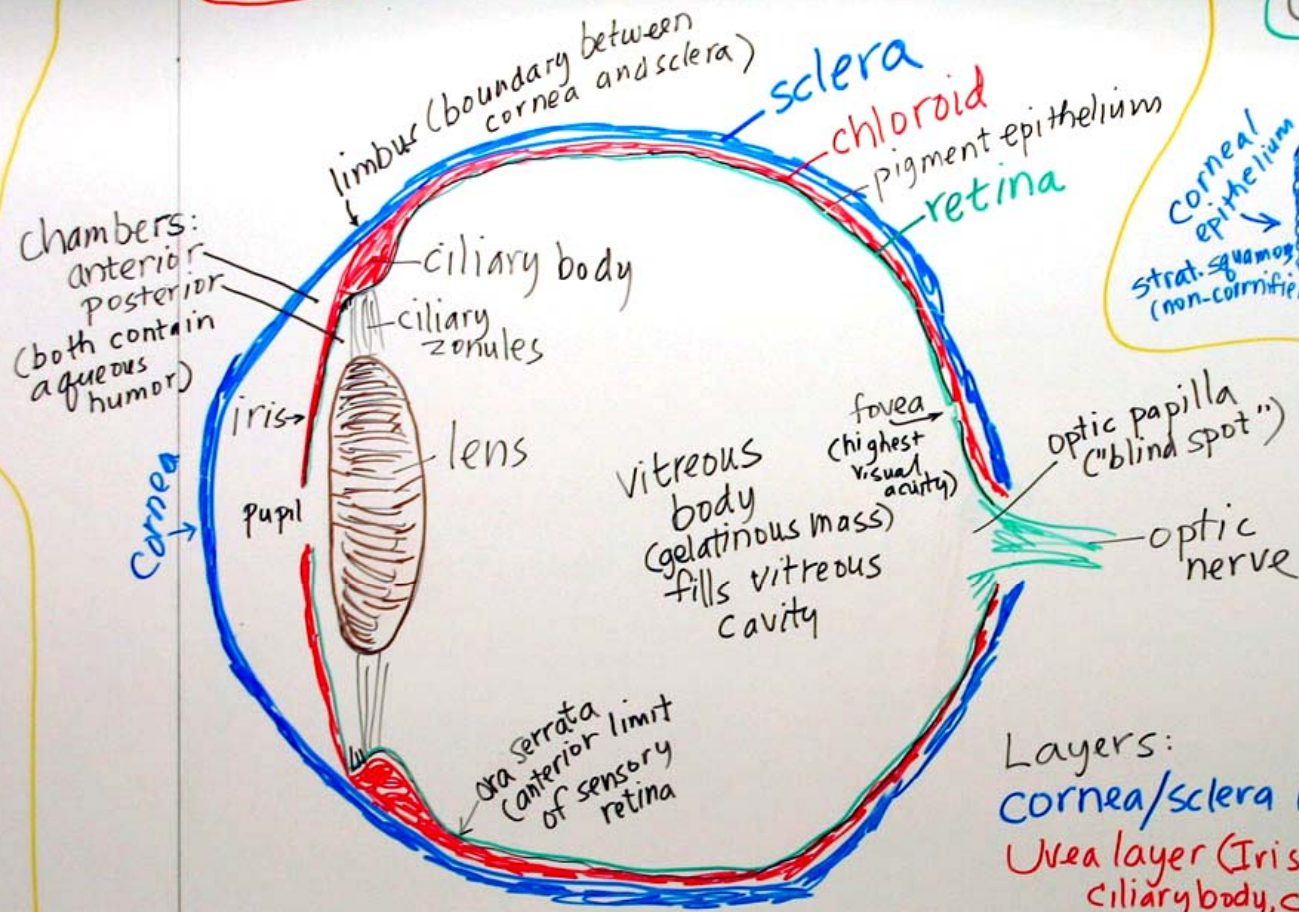 limbus (boundary between
cornea and sclera)
sclera
chloroid
pigment epithelium
retina
corneal
epithelium
strat. squamous
Chambers:
anterior
posterior
(both contain
aqueous
humor)
ciliary body
ciliary
zonules
iris
lens
pupil
Cornea
vitreous
body
(gelatinous mass)
fills vitreous
cavity
fovea
(highest
visual
acurity)
optic papilla
("blind spot")
optic
nerve
ora serrata
(anterior limit
of sensory
retina
Layers:
cornea/sclera
Uvea layer (Iris
ciliary body,